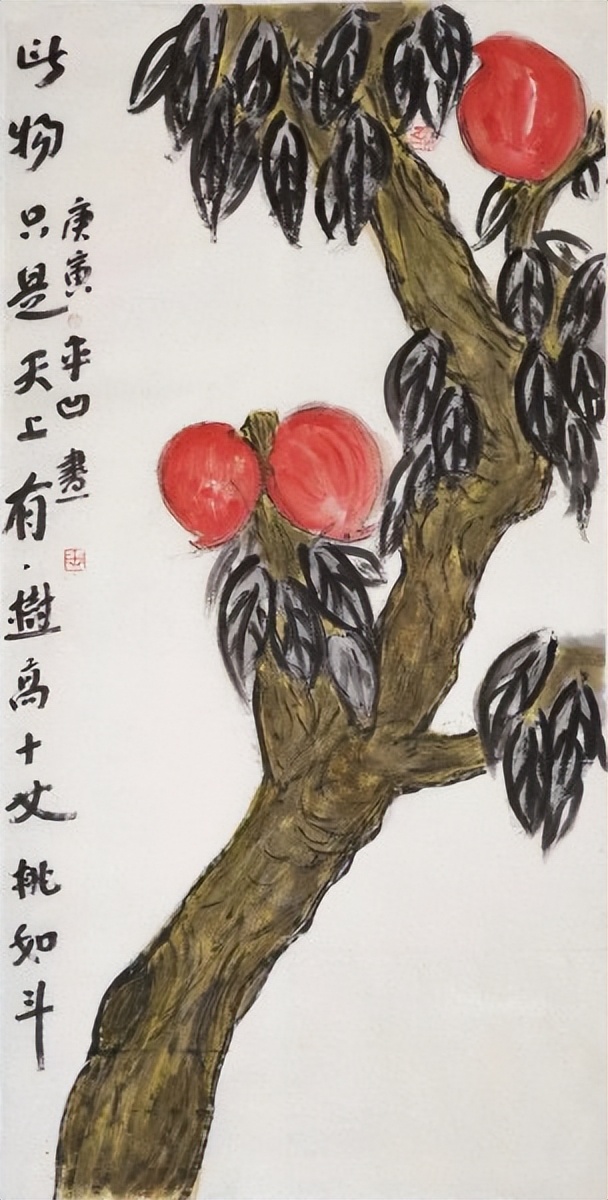 此物只是天上有．樹高十丈桃如斗
庚寅 平凹 畫